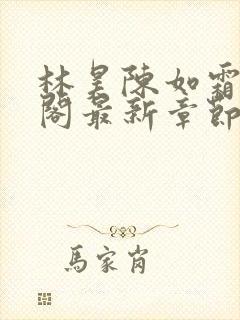 林昊陳如霜
閣最新章節
馬家肖